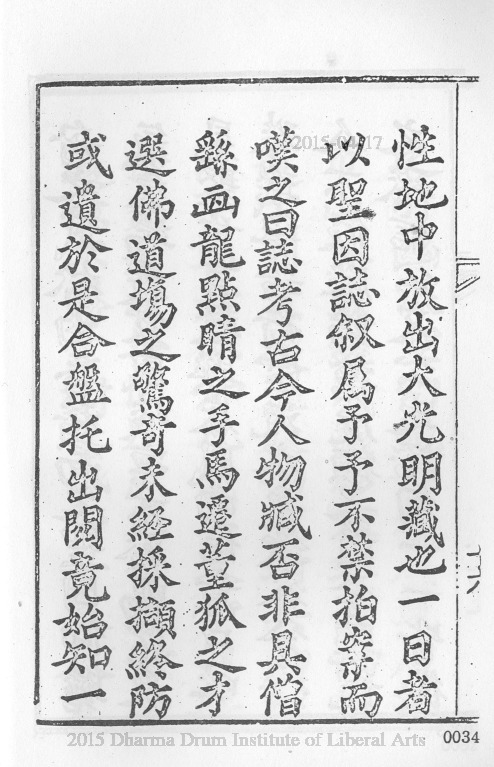 性地中放出大光明藏也一日者
以聖因誌叙属予予不禁拍案而
嘆之曰誌考古今人物臧否非具僧
繇画龍點睛之手馬遷董狐之才
選佛道場之驚奇未經採擷終防
或遺於是合盤托出閱竟始知一
2015-04-17
2015 Dharma Drum Institute of Liberal Arts
0034